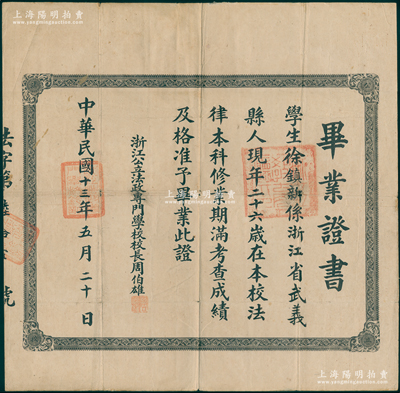 上海陽明拍賣
www.yangmingauction.com
畢業證書
學生徐鎮新係浙江省武義
縣人現年二十六歲在本校法
律本科修業期滿考查成績
及格准予畢業此證
浙江公立法政專門學校校長周伯雄
中華民國十三年五月二十日
法字第
號
上海陽明拍賣
www.yangmingauction.com